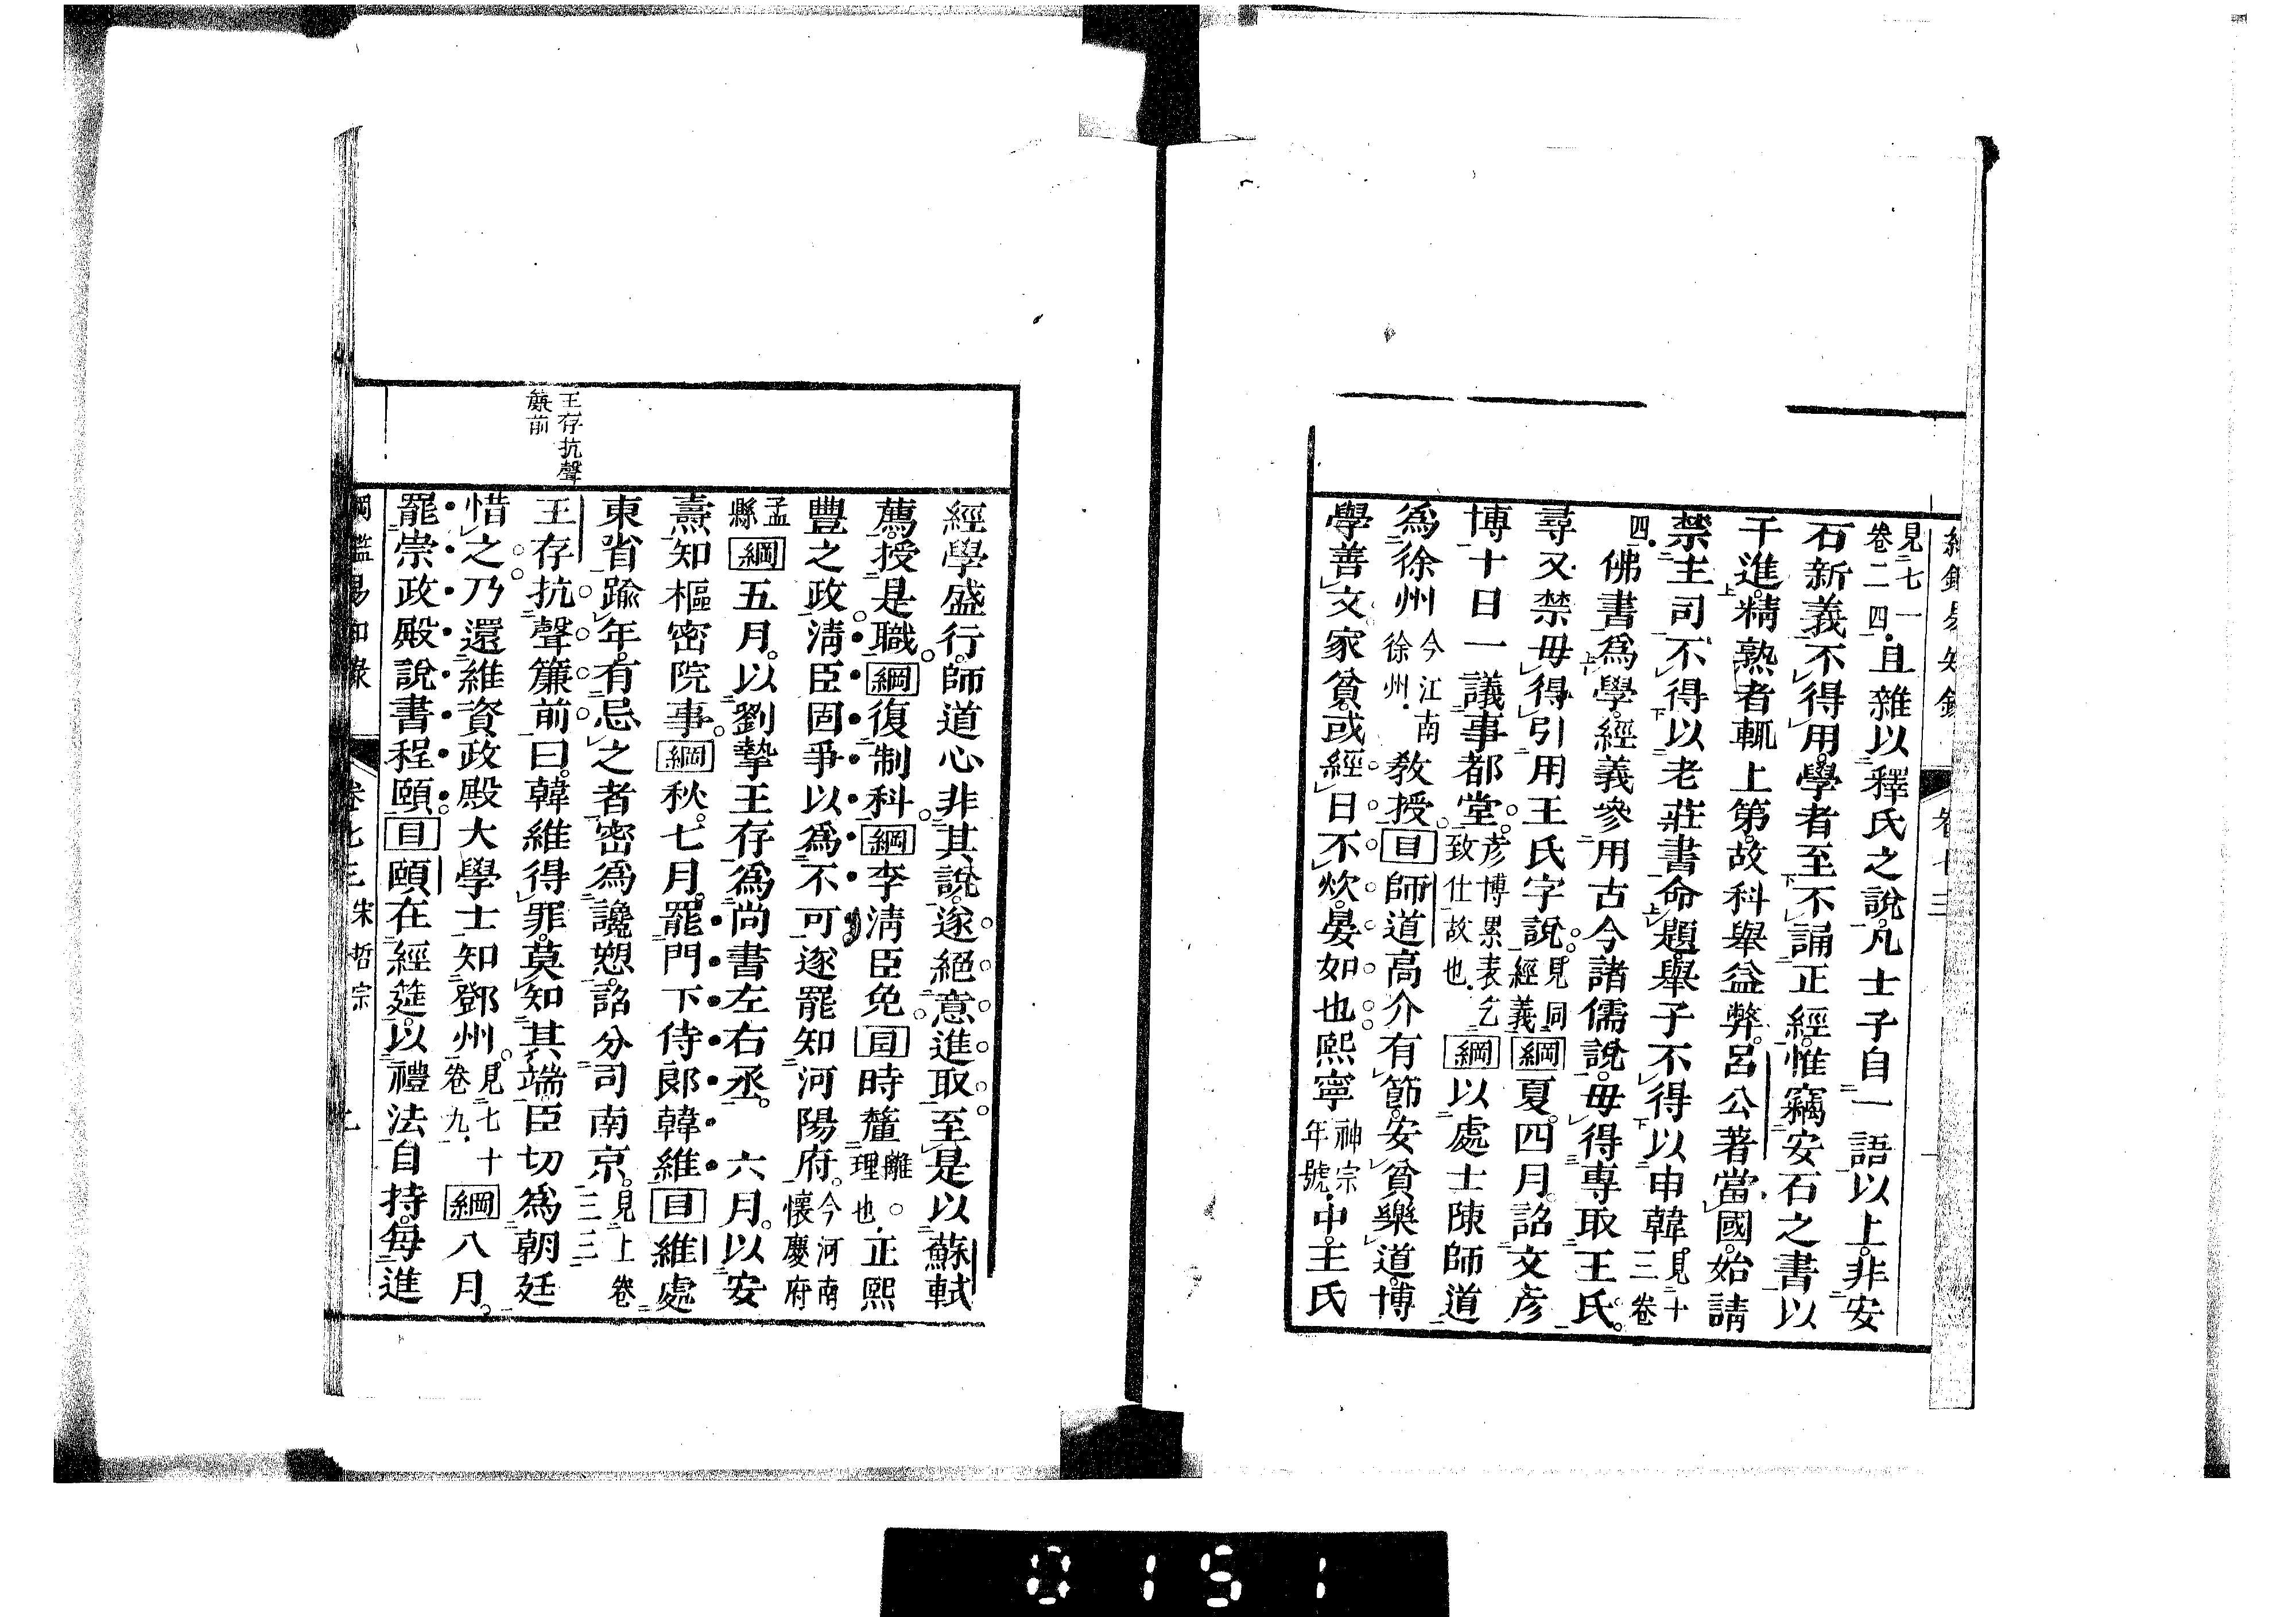 見七一
卷二四
且雜以釋氏之說凡士子自一語以上非安
石新義不得用學者至不誦正經惟竊安石之書以
干進精熟者輒上第故科舉益弊呂公著當國始請
禁主司不得以老莊書命題舉子不得以申韓見十三卷
四佛書爲學經義參用古今諸儒說毋得專取王氏
尋又禁毋得引用王氏字說見同經義綱夏四月詔文彥
博十日一議事都堂彥博累表乞致仕故也綱以處士陳師道
爲徐州今江南徐州教授目師道高介有節安貧樂道博
學善文家貧或經日不炊晏如也熙寧神宗年號中王氏
王存抗聲
簾前
經學盛行師道心非其說遂絕意進取至是以蘇軾
薦授是職綱復制科綱李淸臣免目時釐離理也正熙
豐之政淸臣固爭以爲不可遂罷知河陽府今河南懷慶府
孟縣綱五月以劉摯王存爲尚書左右丞六月以安
燾知樞密院事綱秋七月罷門下侍郎韓維目維處
東省踰年有忌之者密爲讒愬詔分司南京見上卷三三
王存抗聲簾前曰韓維得罪莫知其端臣切爲朝廷
惜之乃還維資政殿大學士知鄧州見七十卷九綱八月
罷崇政殿說書程頤目頤在經筵以禮法自持每進
宋哲宗
0151